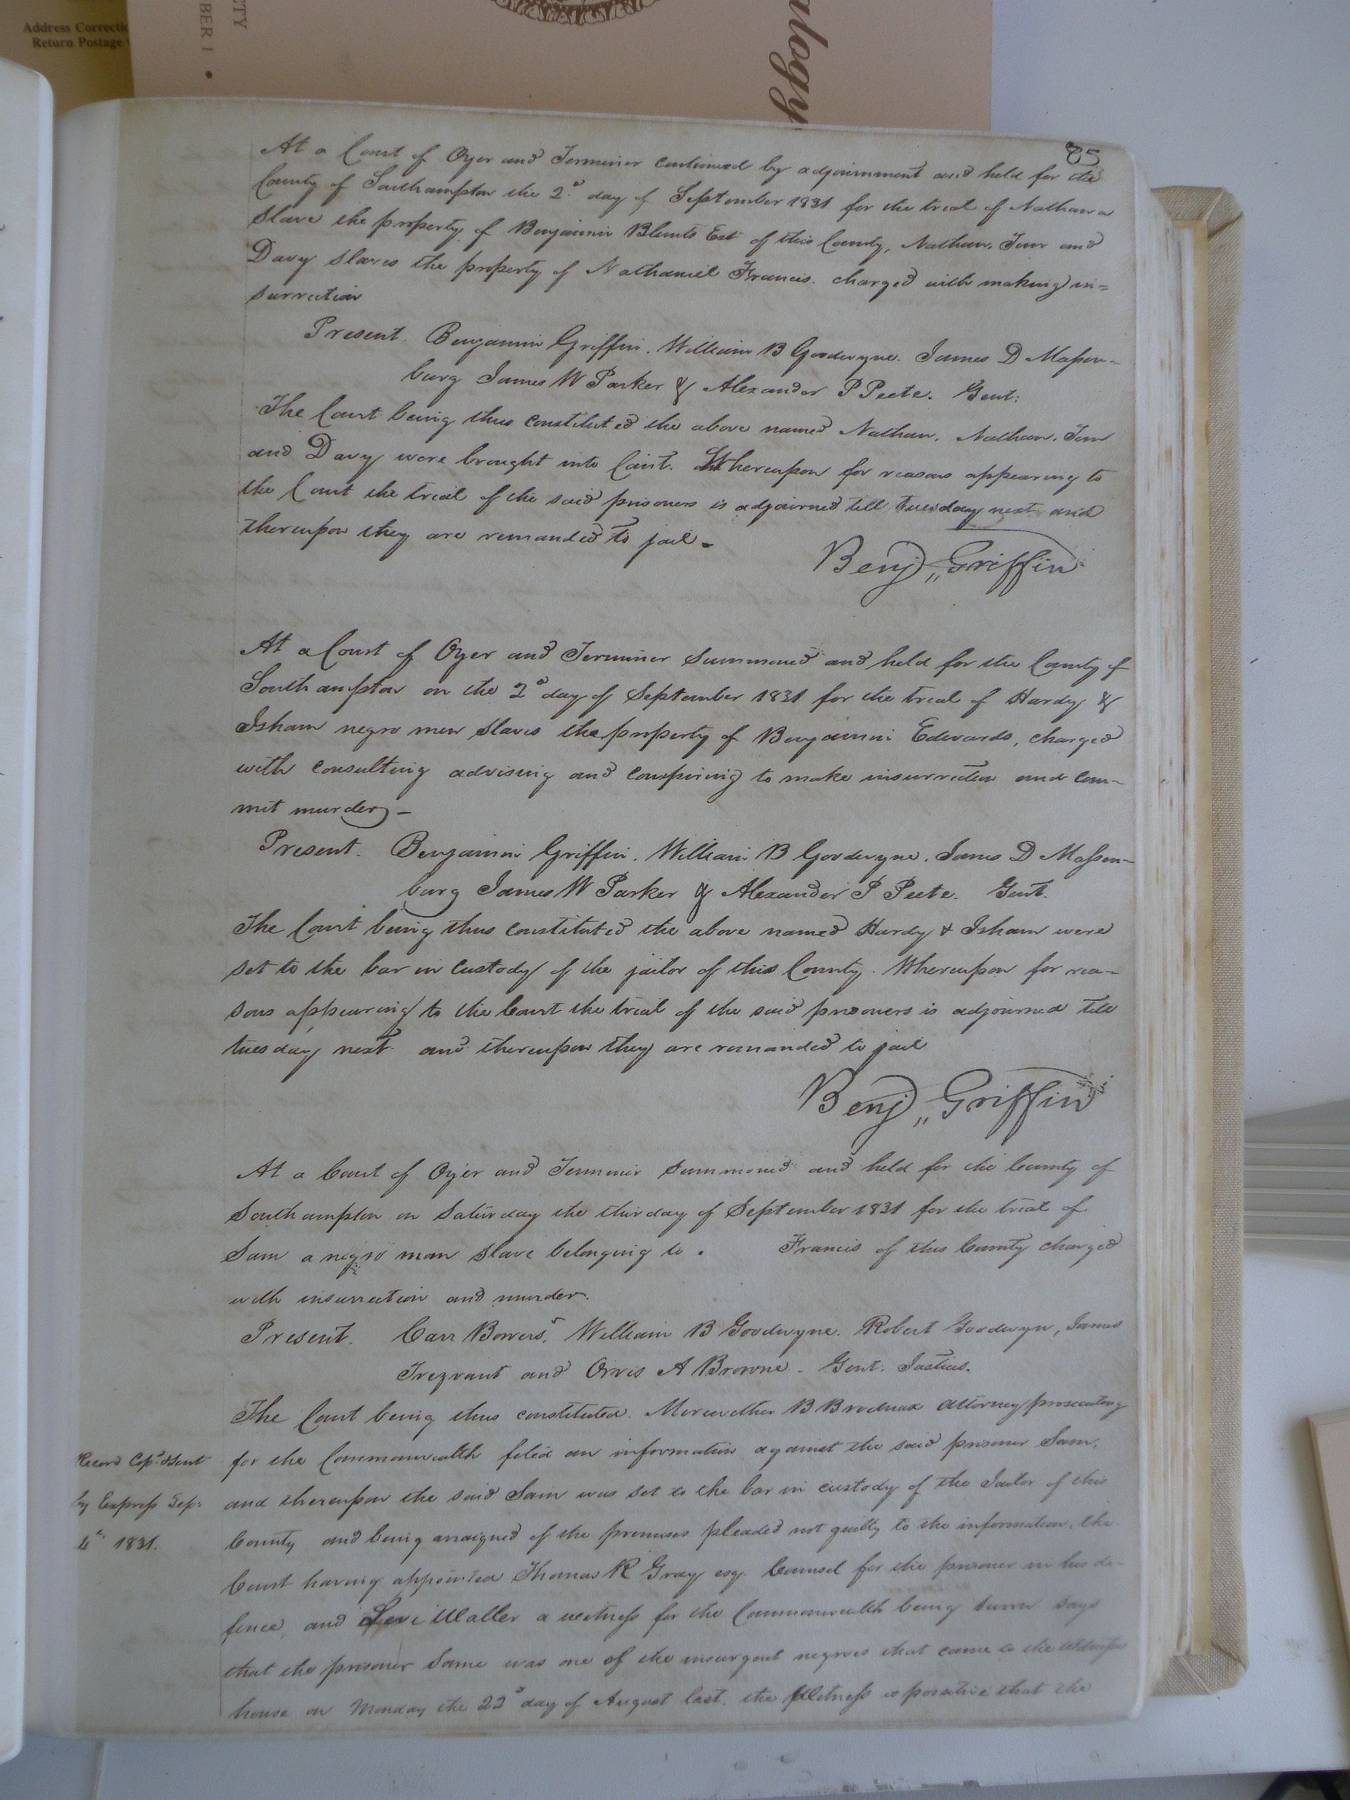 Address Correctio
Return Postage
TY
BER 1 •
alogy
85
At a Court of Oyer and Terminer continued by adjournment and held for the
County of Southampton the 2d day of September 1831 for the trial of Nathan a
Slave the property of Benjamin Blunts Est of this County, Nathan, Tom and
Davy Slaves the property of Nathaniel Francis. charged with making in=
surrection
Present. Benjamin Griffin. William B Goodwyne. James D Massen-
burg James W Parker & Alexander P Peete. Gent:
The Court being thus constituted the above named Nathan, Nathan, Tom
and Davy were brought into Court. Whereupon for reasons appearing to
the Court the trial of the said prisoners is adjourned till Tuesday next and
thereupon they are remanded to jail.
Benj,, Griffin
At a Court of Oyer and Terminer Summoned and held for the County of
Southampton on the 2d day of September 1831 for the trial of Hardy &
Isham negro men slaves the property of Benjamin Edwards, charged
with consulting advising and conspiring to make insurrection and com-
mit murder -
Present. Benjamin Griffin. William B Goodwyne. James D Massen-
burg James W Parker & Alexander P Peete. Gent.
The Court being thus constituted the above named Hardy & Isham were
Set to the bar in custody of the jailor of this County. Whereupon for rea-
sons appearing to the Court the trial of the said prisoners is adjourned till
tuesday next and thereupon they are remanded to jail
Benj,, Griffin
At a Court of Oyer and Terminer Summoned and held for the County of
Southampton on Saturday the third day of September 1831 for the trial of
Sam a negro man slave belonging to . Francis of this County charged
with insurrection and murder.
Present. Carr Bowers, William B Goodwyne. Robert Goodwyn, James
Trezvant and Orris A Browne. Gent. Justices.
The Court being thus constituted. Meriwether B Brodnax attorney prosecuting
for the Commonwealth filed an information against the said prisoner Sam,
and thereupon the said Sam was set to the bar in custody of the Jailor of this
County and being arraigned of the premises pleaded not guilty to the information. the
Court having appointed Thomas R Gray esq. Counsel for the prisoner in his de-
fence, and Levi Waller a witness for the Commonwealth being sworn says
that the prisoner Same was one of the insurgent negroes that came to the Witness
house on Monday the 22d day of August last. the Witness is positive that the
Record Cp.d & sent
by Express Sep:
4th 1831.